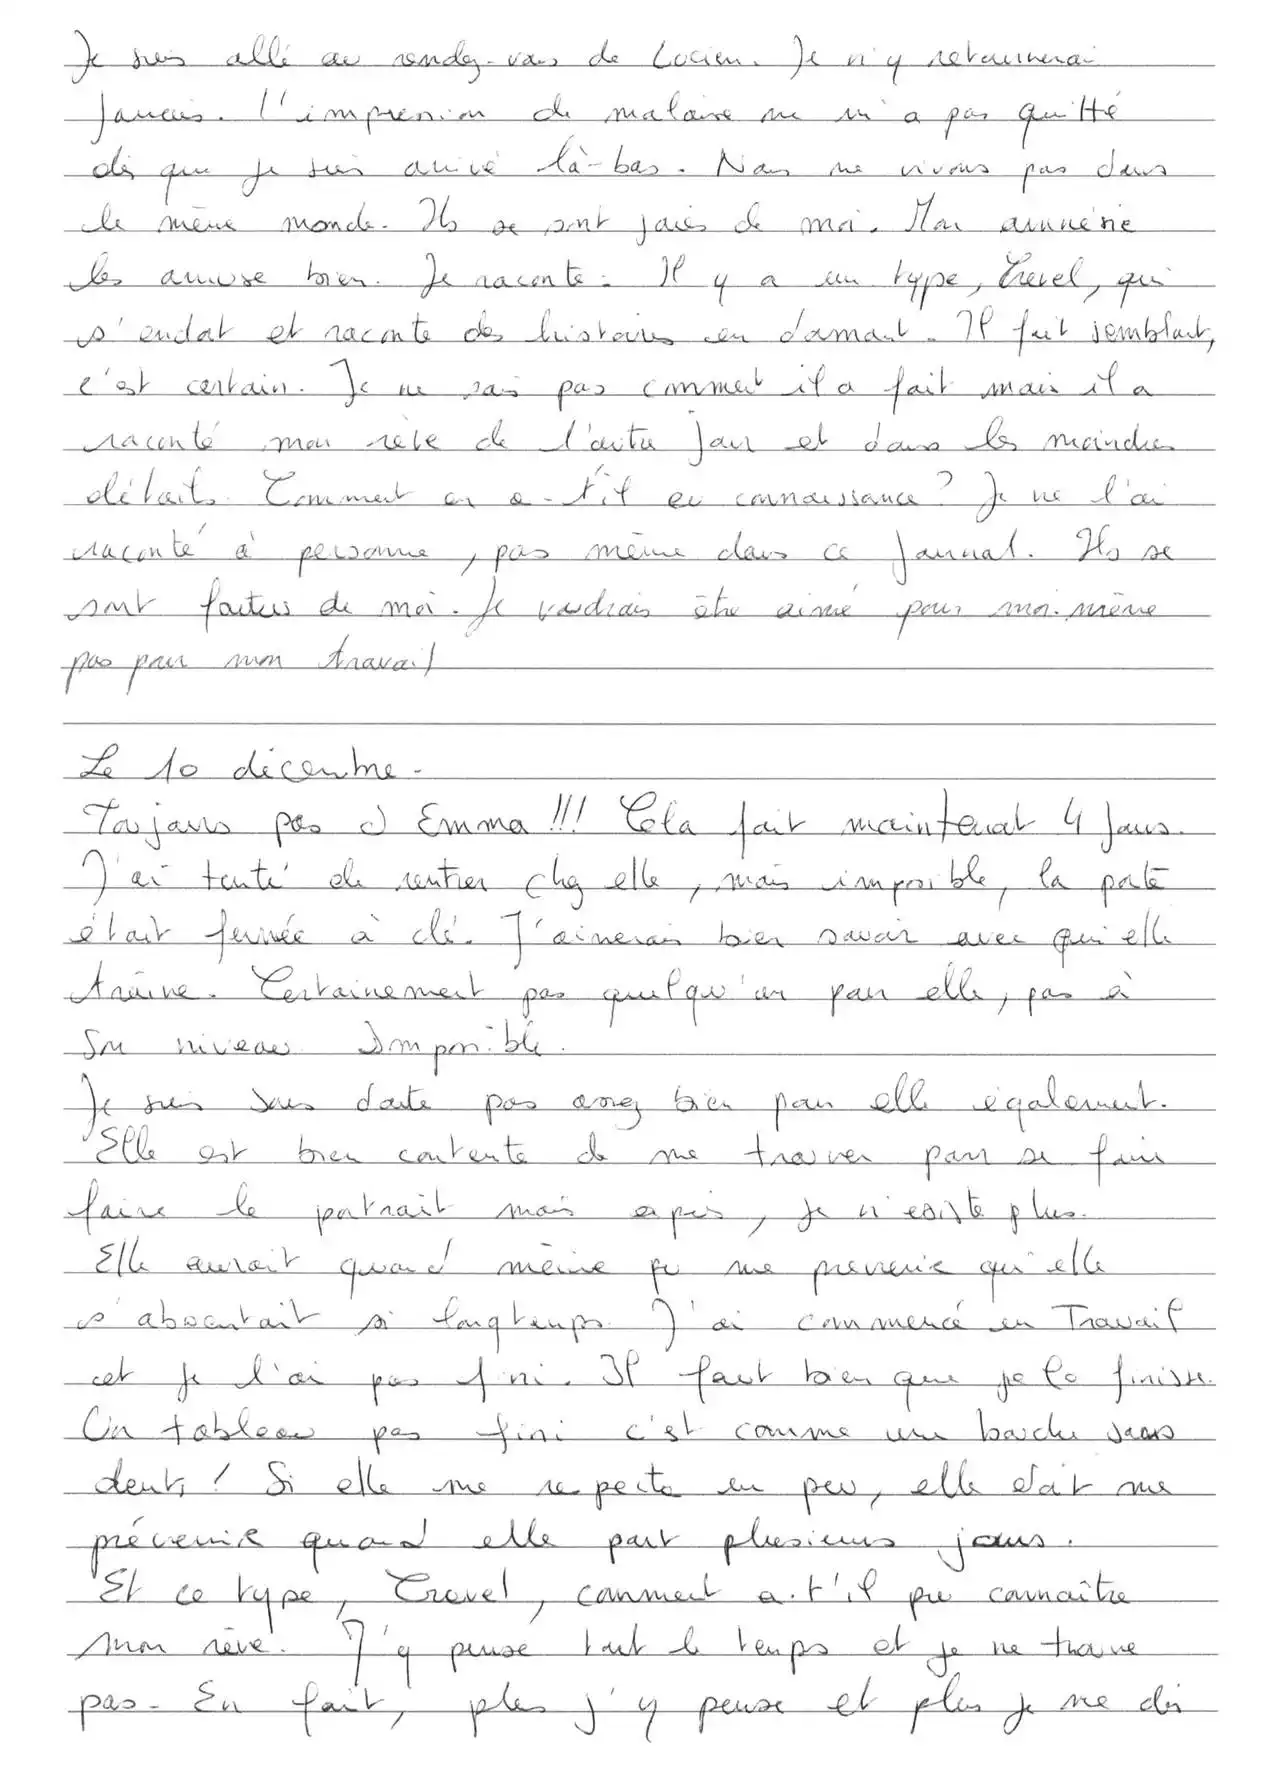 Je suis allé au rendez-vous de Lucien. Je n'y retournerai
jamais. L'impression de malaise ne m'a pas quitté
dès que je suis arrivé là-bas. Nous ne vivons pas dans
le même monde. Ils se sont joués de moi. Mon amnésie
les amuse bien. Je raconte : Il y a un type, Crevel, qui
s'endort et raconte des histoires en dormant. Il fait semblant,
c'est certain. Je ne sais pas comment il a fait mais il a
raconté mon rêve de l'autre jour et dans les moindres
détails. Comment en a-t'il eu connaissance ? Je ne l'ai
raconté à personne, pas même dans ce journal. Ils se
sont foutus de moi. Je voudrais être aimé pour moi-même
pas pour mon travail
Le 10 décembre.
Toujours pas d'Emma !!! Cela fait maintenant 4 jours.
J'ai tenté de rentrer chez elle, mais impossible, la porte
était fermée à clé. J'aimerais bien savoir avec qui elle
traîne. Certainement pas quelqu'un pour elle, pas à
son niveau. Impossible.
Je suis sans doute pas assez bien pour elle également.
Elle est bien contente de me trouver pour se faire
faire le portrait mais après, je n'existe plus.
Elle aurait quand même pu me prévenir qu'elle
s'absentait si longtemps. J'ai commencé un Travail
et je l'ai pas fini. Il faut bien que je le finisse.
Un tableau pas fini c'est comme une bouche sans
dents ! Si elle me respecte un peu, elle doit me
prévenir quand elle part plusieurs jours.
Et ce type, Crevel, comment a-t'il pu connaître
mon rêve. J'y pense tout le temps et je ne trouve
pas. En fait, plus j'y pense et plus je me dis